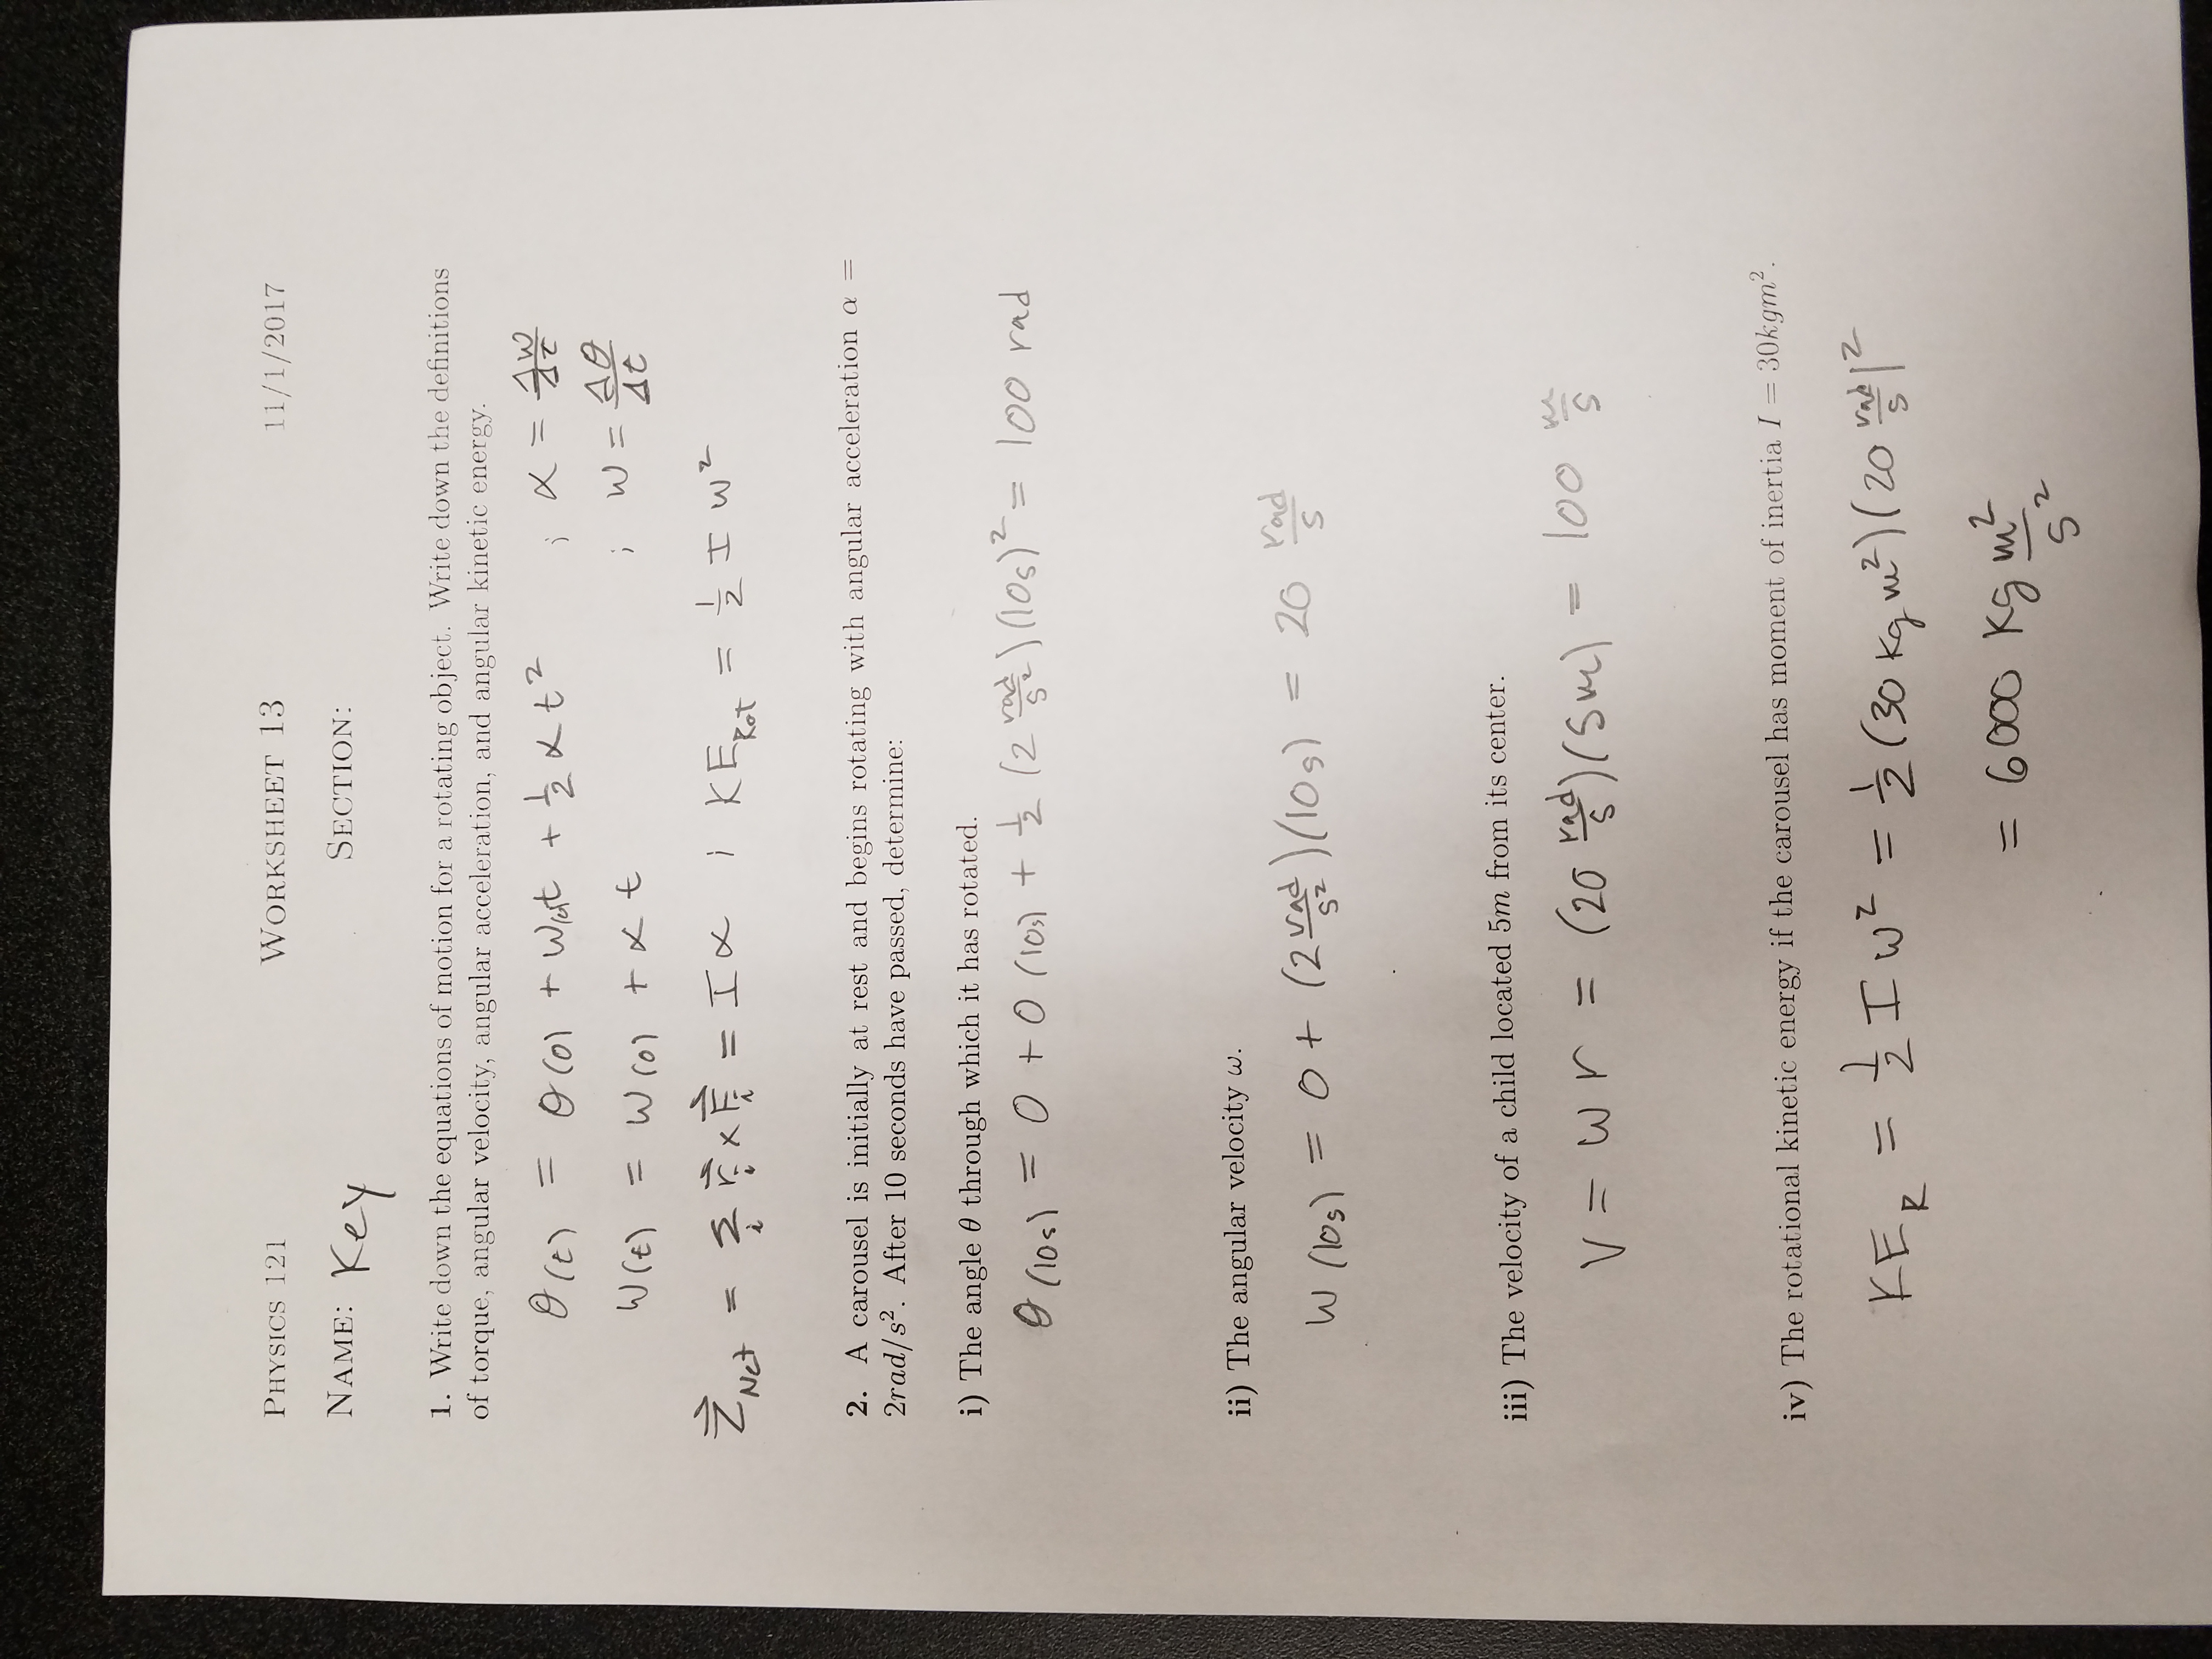 PHYSICS 121 WORKSHEET 13 11/1/2017
NAME: Key SECTION:
1. Write down the equations of motion for a rotating object. Write down the definitions
of torque, angular velocity, angular acceleration, and angular kinetic energy.
θ(t) = θ(0) + ω(0)t + 1/2 α t² ; α = Δω/Δt
ω(t) = ω(0) + α t ; ω = Δθ/Δt
τ⃗_Net = Σ_i r⃗_i × F⃗_i = I α ; KE_Rot = 1/2 I ω²
2. A carousel is initially at rest and begins rotating with angular acceleration α =
2rad/s². After 10 seconds have passed, determine:
i) The angle θ through which it has rotated.
θ(10s) = 0 + 0 (10s) + 1/2 (2 rad/s²)(10s)² = 100 rad
ii) The angular velocity ω.
ω(10s) = 0 + (2 rad/s²)(10s) = 20 rad/s
iii) The velocity of a child located 5m from its center.
V = ω r = (20 rad/s)(5m) = 100 m/s
iv) The rotational kinetic energy if the carousel has moment of inertia I = 30kgm².
KE_R = 1/2 I ω² = 1/2 (30 kg m²)(20 rad/s)²
= 6000 kg m²/s²